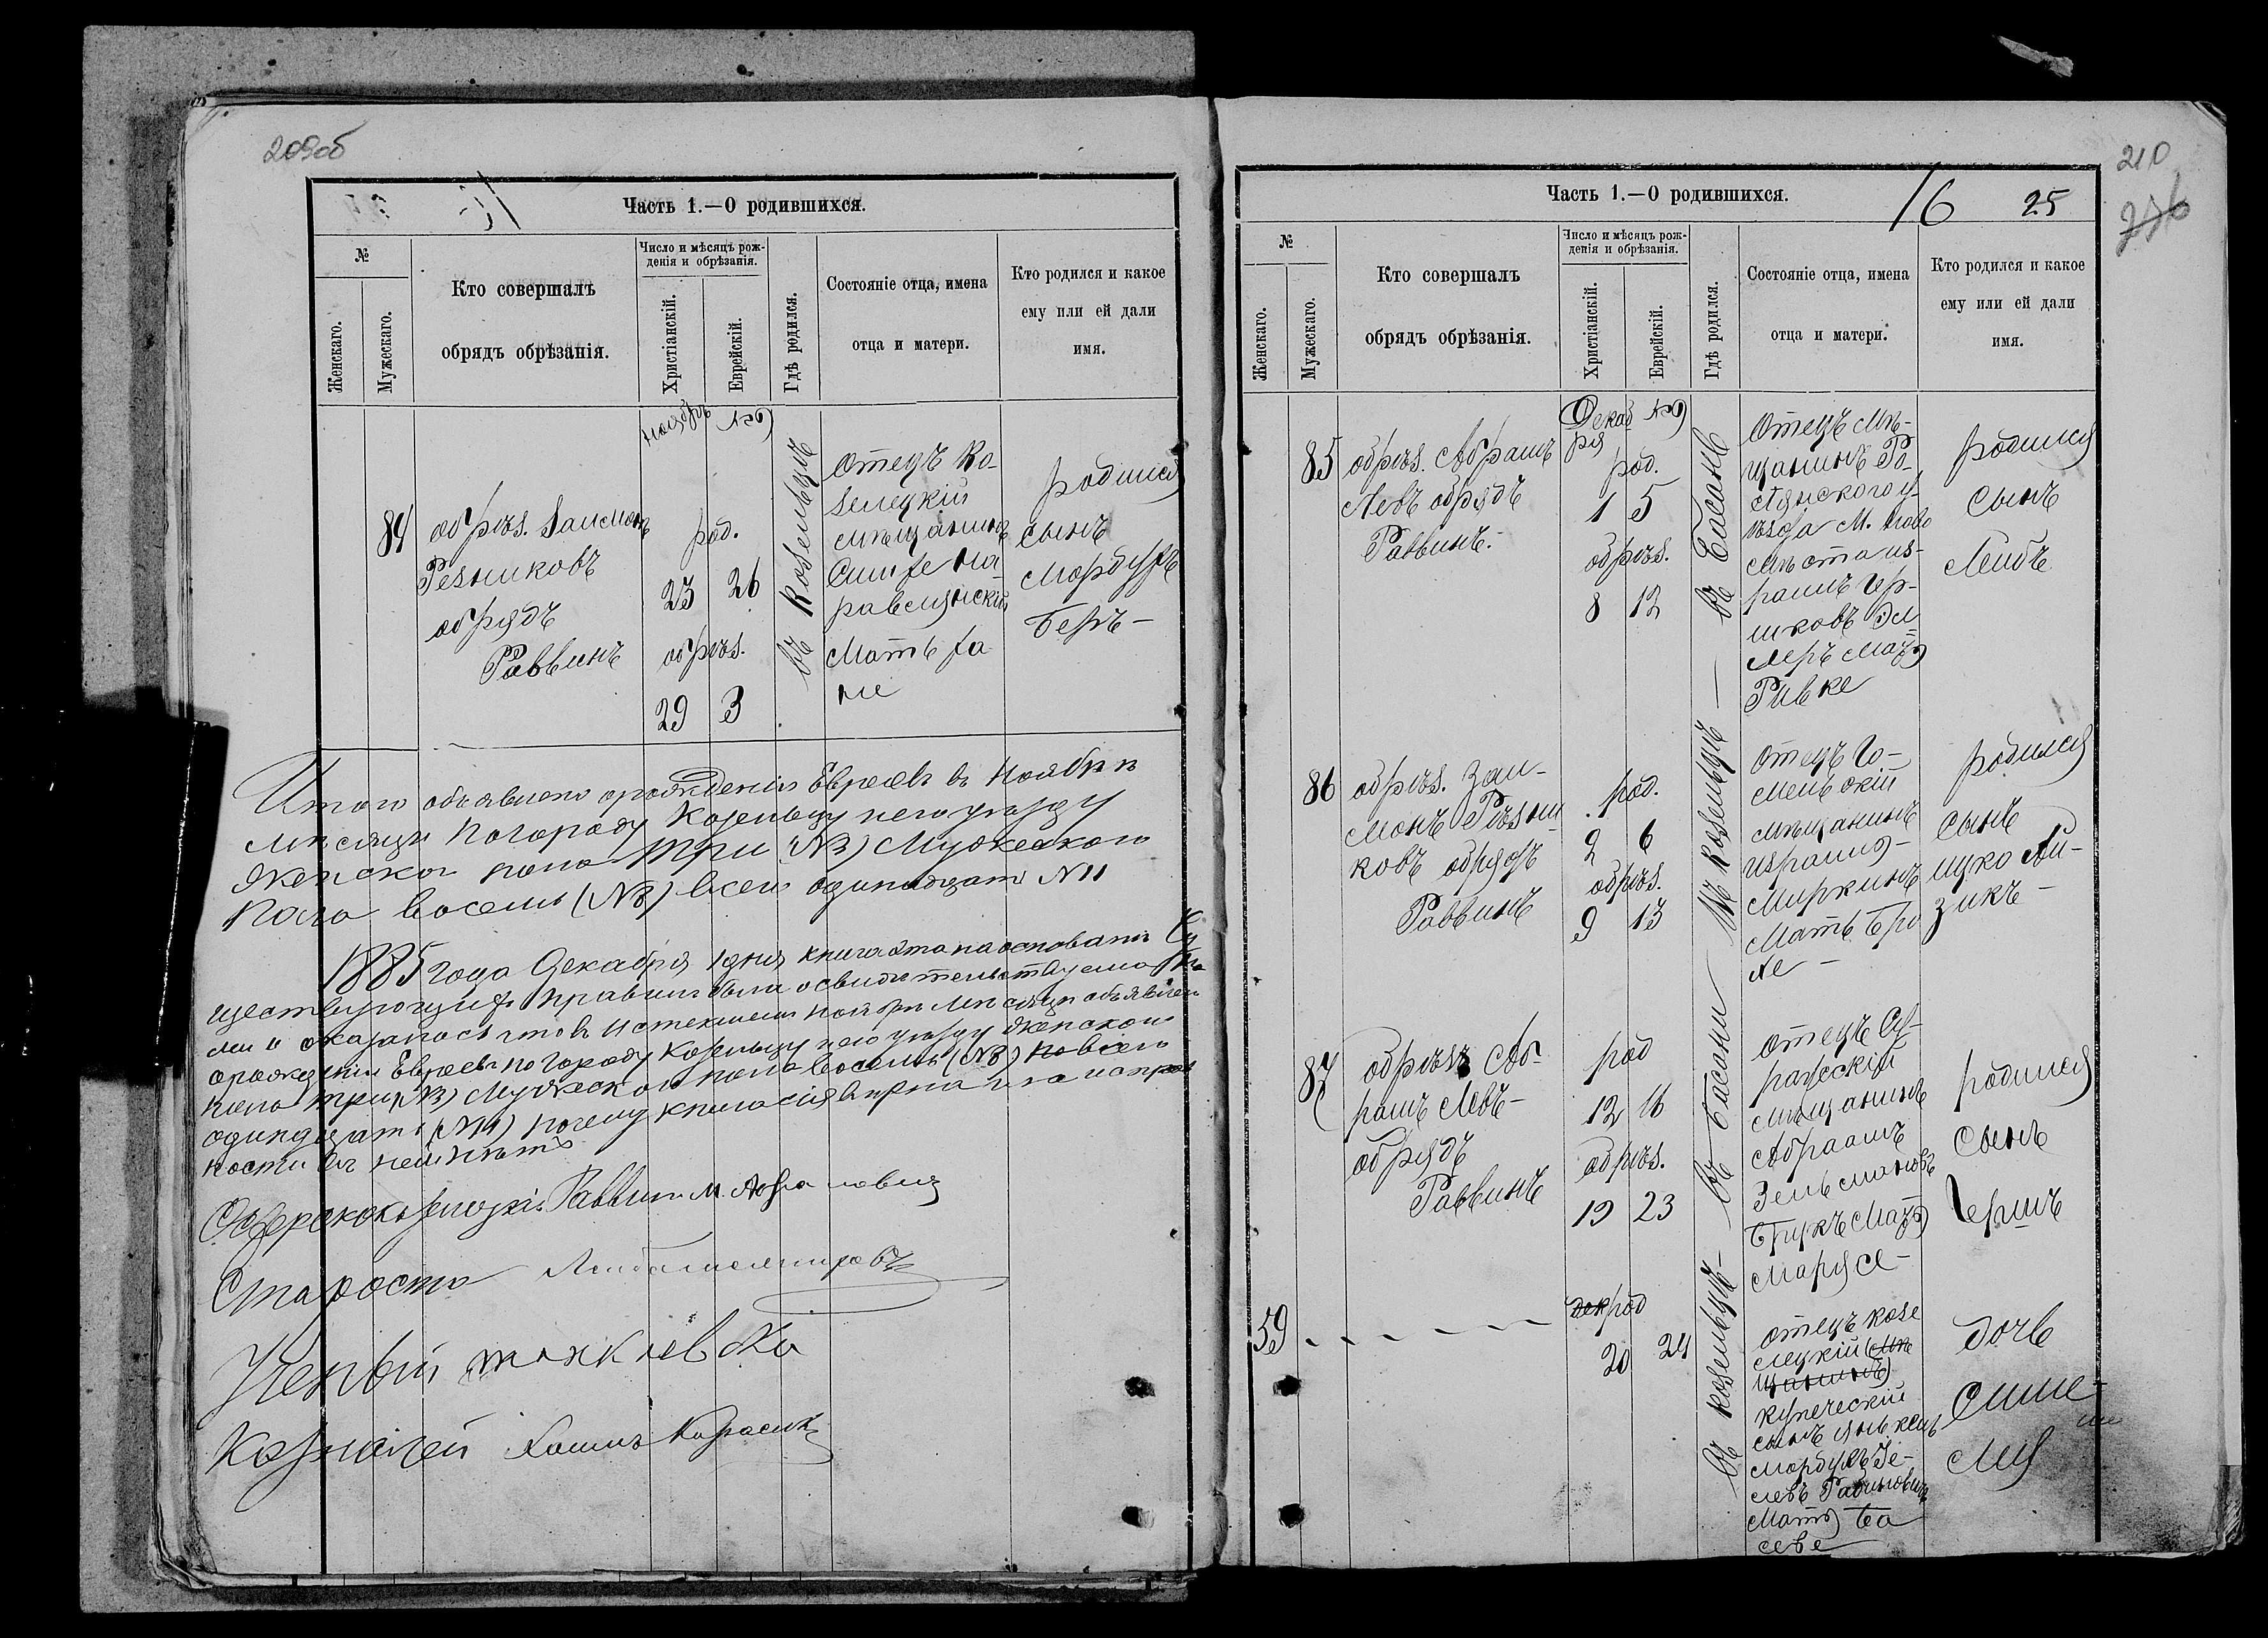 209об
Часть 1.—О родившихся.
№
Женскаго.
Мужескаго.
Кто совершалъ
обрядъ обрѣзанія.
Число и мѣсяцъ рож-
денія и обрѣзанія.
Христіанскій.
Еврейскій.
Гдѣ родился.
Состояніе отца, имена
отца и матери.
Кто родился и какое
ему или ей дали
имя.
84
обрѣз. Залмонъ
Резниковъ
обрядъ
Раввинъ
Ноябрь
род.
23 26
обрѣз.
29 3
въ Козельцѣ
Отецъ Ко-
зелецкій
мѣщанинъ
Мать Ха
не
родился
сынъ
Мордухъ
Беръ —
Итого объявлено о рожденіи Евреевъ въ Ноябрѣ
мѣсяцѣ по городу Козельцу и его уѣзду
Женскаго пола три (№3) Мужескаго
Пола восемь (№8) всего одинадцать №11
1885 года Декабря 1 дня книга эта на основаніи Су
ществующихъ правилъ была освидѣтельствуема На
ми и оказалось что въ истекшемъ Ноябрѣ Мѣсяцѣ объявлено
о рожденіи Евреевъ по городу Козельцу и его уѣзду Женскаго
пола три (№3) Мужескаго пола восемь (№8)
одинадцать (№11) почему книга сія вѣрна
ности въ ней нѣтъ
Раввинъ М.
Староста
Ученый
Казначей Хаимъ Карасикъ
210
276
16 25
Часть 1.—О родившихся.
№
Женскаго.
Мужескаго.
Кто совершалъ
обрядъ обрѣзанія.
Число и мѣсяцъ рож-
денія и обрѣзанія.
Христіанскій.
Еврейскій.
Гдѣ родился.
Состояніе отца, имена
отца и матери.
Кто родился и какое
ему или ей дали
имя.
85
обрѣз. Абрамъ
Левъ обрядъ
Раввинъ.
Декаб
ря
род.
1 5
обрѣз.
8 12
въ Басанѣ
Отецъ Мѣ-
щанинъ
уѣзда М. Ново
мѣста Из-
раилъ Ир-
шковъ
меръ Мать
Ривке
родился
сынъ
Лейбъ
86
обрѣз. Зал-
монъ Рѣзни
ковъ обрядъ
Раввинъ
род.
2 6
обрѣз.
9 13
въ Козельцѣ —
Отецъ Го-
мельскій
мѣщанинъ
Израиль
Миркинъ
Мать Бро
не —
родился
сынъ
Ицко Ай-
зикъ —
87
обрѣзъ Аб-
рамъ Левъ —
обрядъ
Раввинъ
род
12 16
обрѣз.
19 23
въ Басани
Отецъ Су-
ражскій
Мѣщанинъ
Абраамъ
Зельмановъ
Мать
Марусе —
родился
сынъ
Гершъ
59
род
20 24
въ Козельцѣ —
Отецъ Козе
лецкій (мѣ
щанинъ)
купеческій
сынъ
Мордухъ Зе-
левъ Рабиновичъ
Мать Ба
севе
дочь
Симе